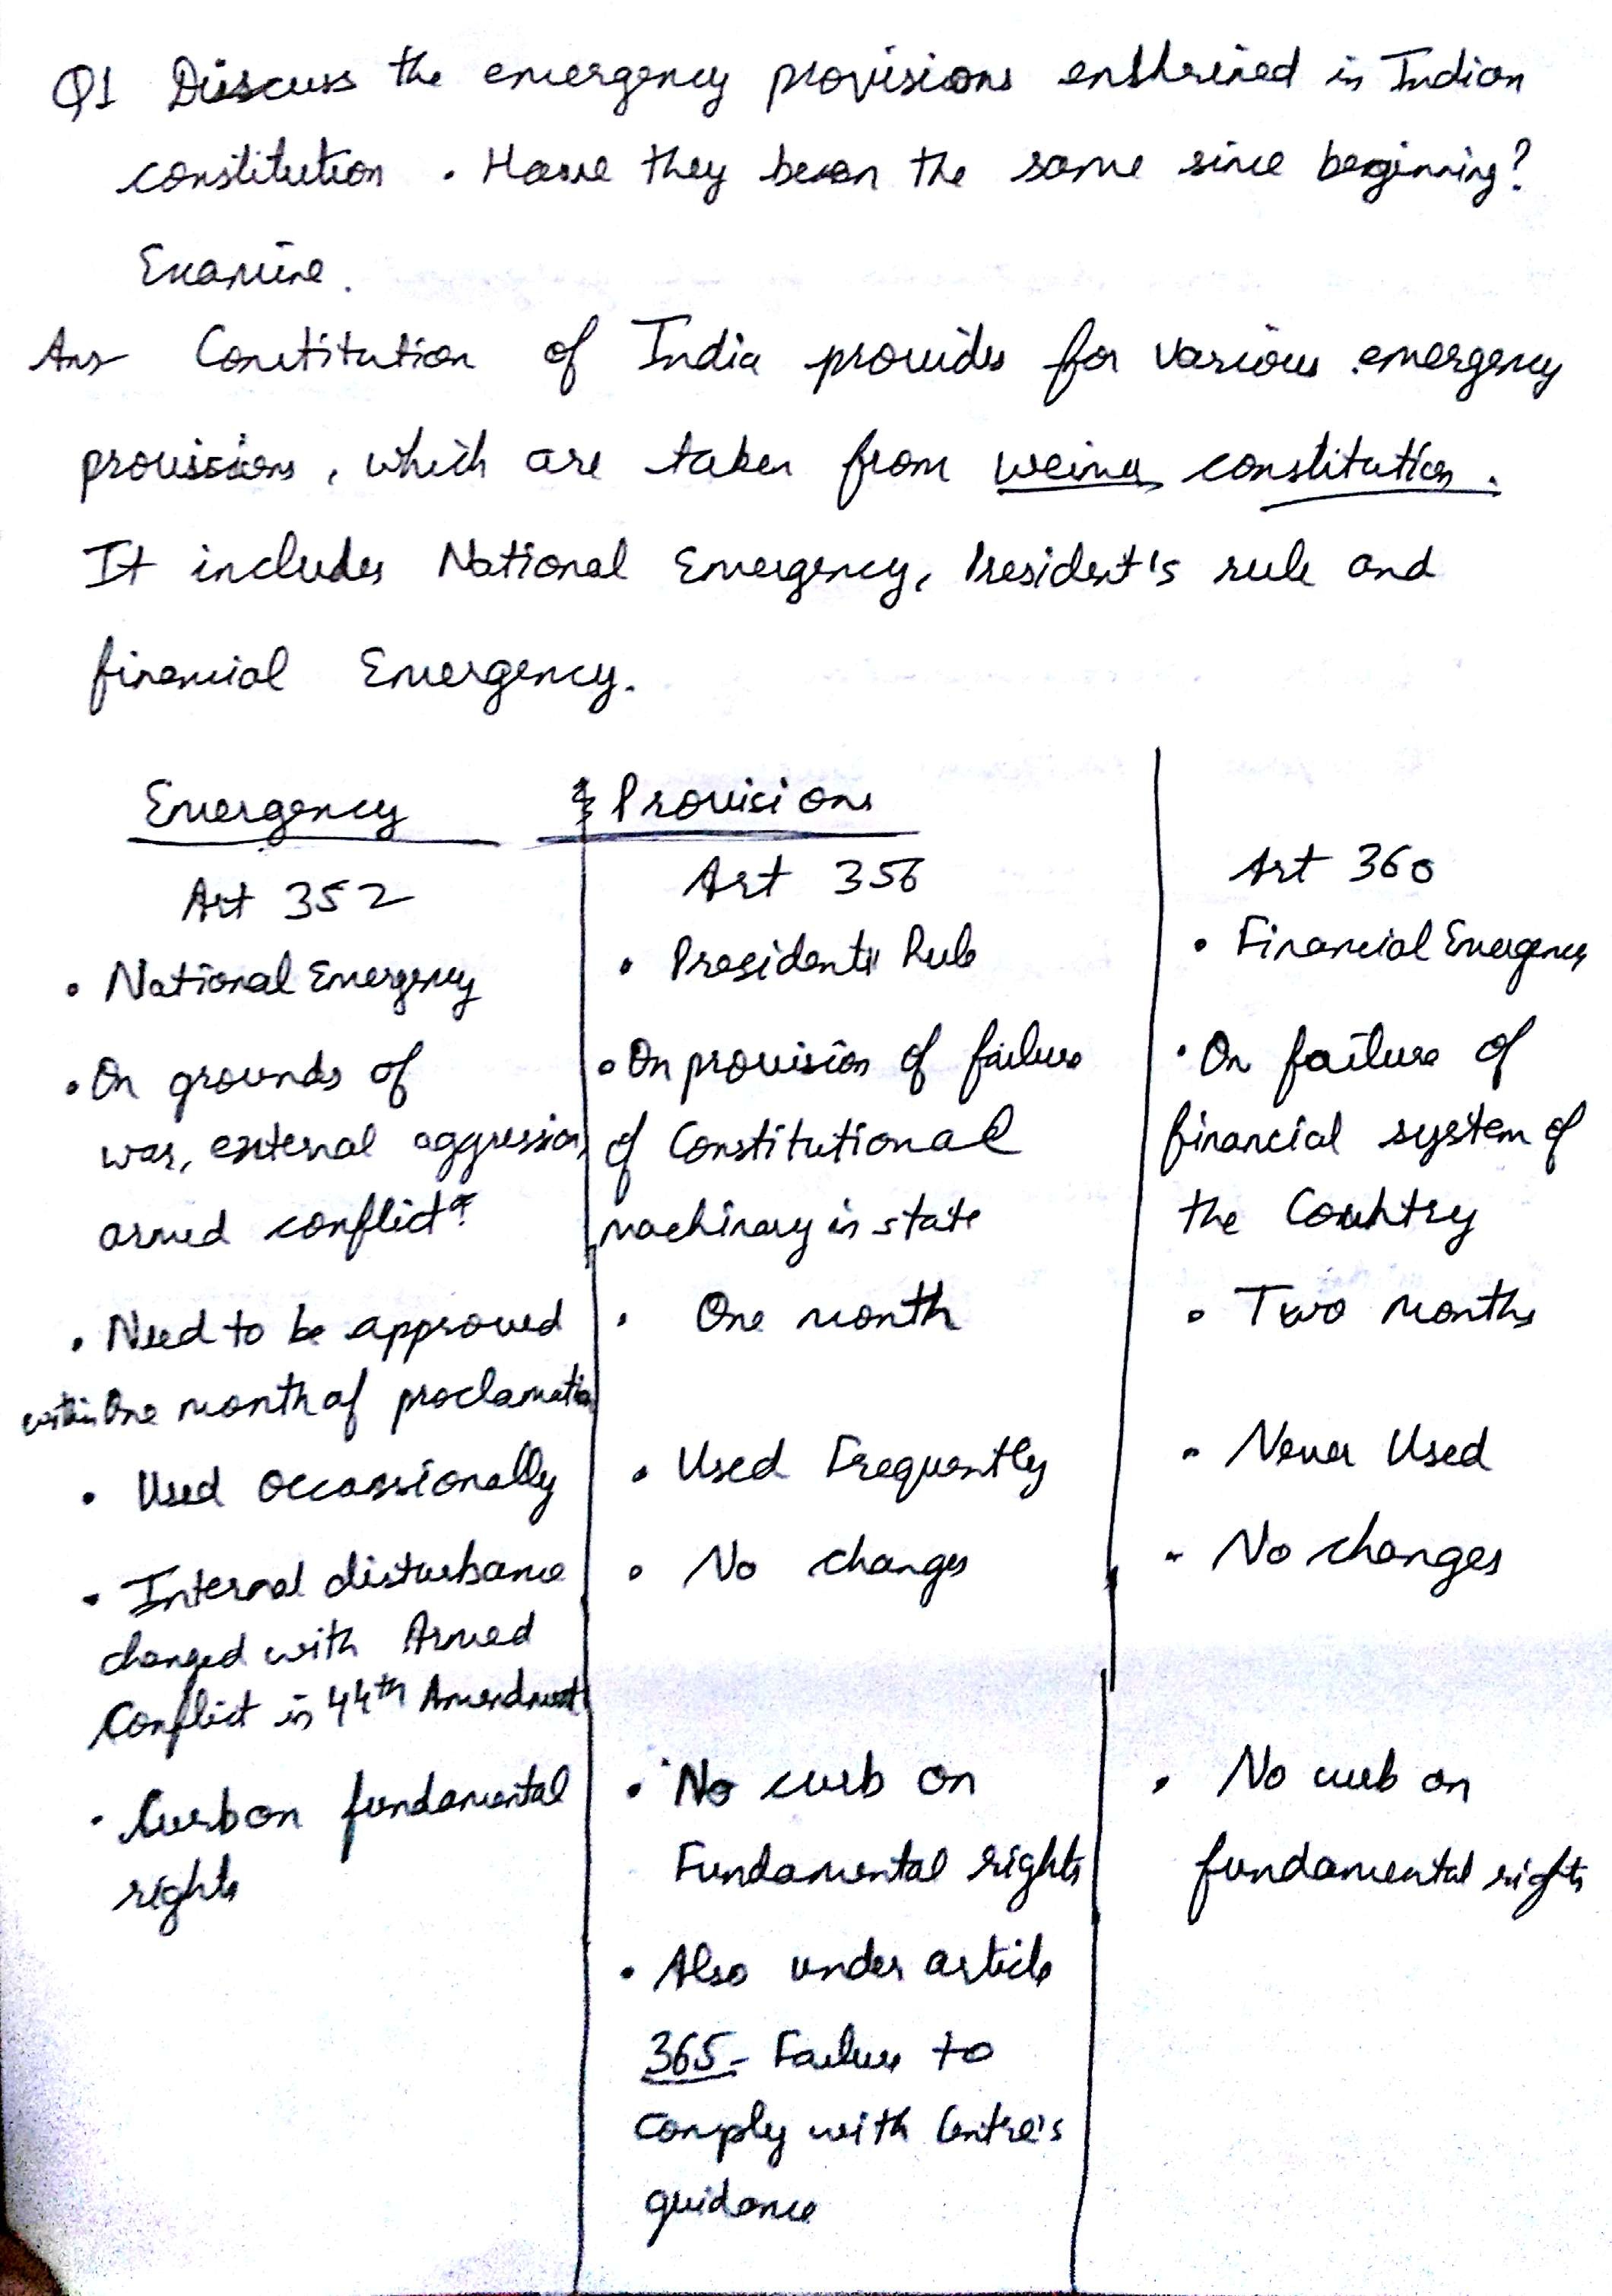 Q1 Discuss the emergency provisions enshrined in Indian
constitution. Have they been the same since beginning?
Examine.
Ans Constitution of India provides for various emergency
provisions, which are taken from weimer constitution.
It includes National Emergency, President's rule and
financial Emergency.
Emergency Provisions
Art 352
• National Emergency
• On grounds of
war, external aggression,
armed conflict
• Need to be approved
within One month of proclamation
• Used occassionally
• Internal disturbance
changed with Armed
Conflict in 44th Amendment
• Curb on fundamental
rights
Art 356
• President's Rule
• On provision of failure
of Constitutional
machinary in state
• One month
• Used Frequently
• No changes
• No curb on
Fundamental rights
• Also under article
365 - Failure to
comply with Centre's
guidance
Art 360
• Financial Emergency
• On failure of
financial system of
the Country
• Two months
• Never Used
• No changes
• No curb on
fundamental rights